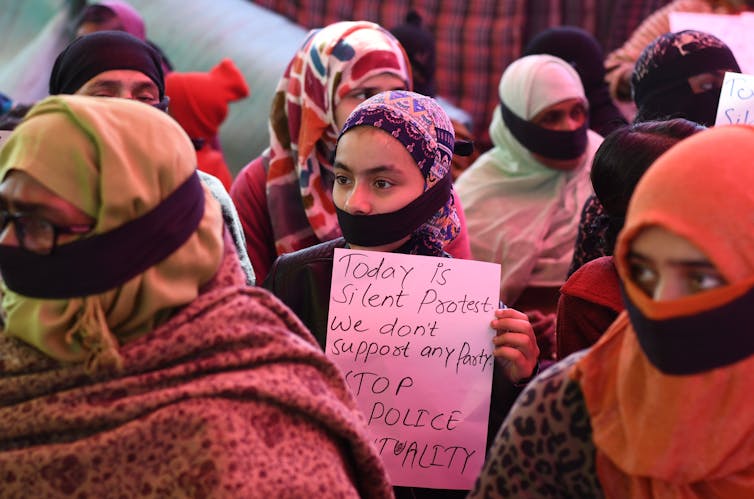 Today is
Silent Protest.
We don't
support any Party.
STOP
POLICE
UTALITY